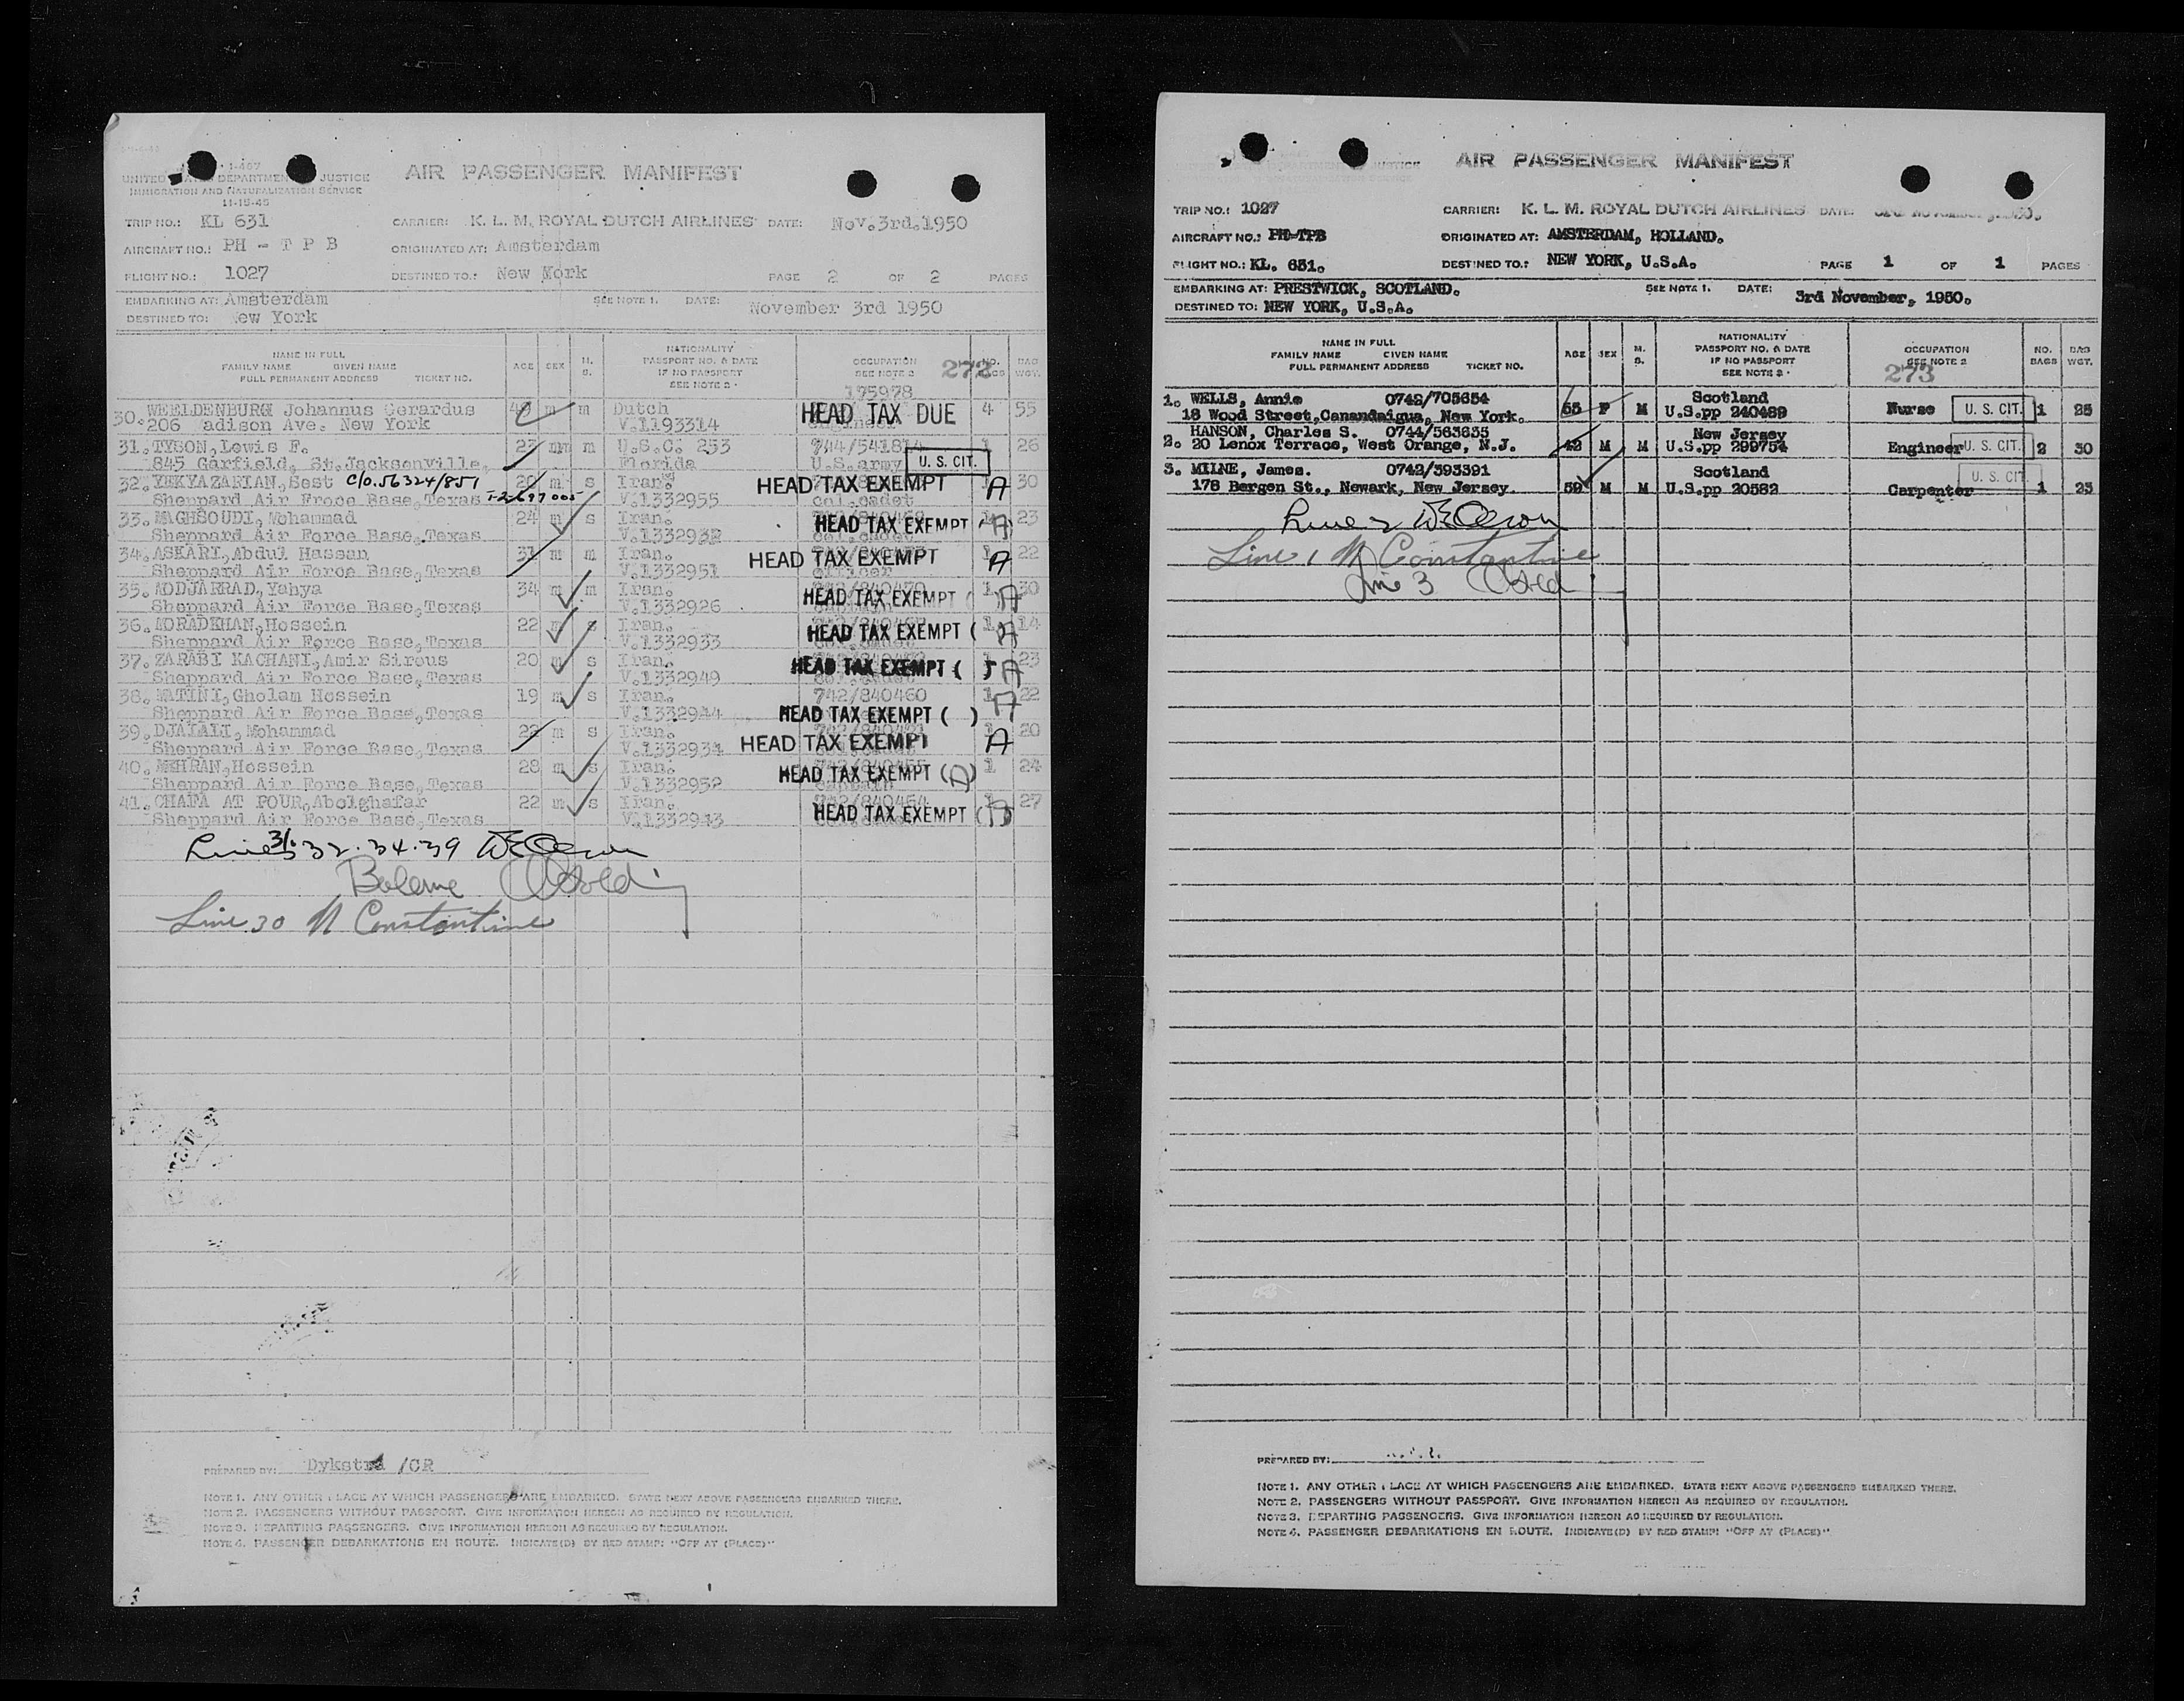 AIR PASSENGER MANIFEST
UNITED DEPARTMENT JUSTICE
IMMIGRATION AND NATURALIZATION SERVICE
11-15-45
TRIP NO.: KL 631 CARRIER: K. L. M. ROYAL DUTCH AIRLINES DATE: Nov.3rd.1950
AIRCRAFT NO.: PH - T P B ORIGINATED AT: Amsterdam
FLIGHT NO.: 1027 DESTINED TO.: New York PAGE 2 OF 2 PAGES
EMBARKING AT: Amsterdam SEE NOTE 1. DATE: November 3rd 1950
DESTINED TO: ew York
NAME IN FULL
FAMILY NAME GIVEN NAME
FULL PERMANENT ADDRESS TICKET NO.
AGE SEX M. S.
NATIONALITY
PASSPORT NO. & DATE
IF NO PASSPORT
SEE NOTE 2.
OCCUPATION
SEE NOTE 2
272
NO. BAGS BAG WGT.
175978
30. WEELDENBURG Johannus Gerardus m m Dutch HEAD TAX DUE 4 55
206 adison Ave. New York V.1193314
31. TYSON, Lewis F. 23 m m U.S.C. 253 744/541814 1 26
845 Garfield, St.Jacksonville, Florida U.S.army U. S. CIT.
32. YEKYAZARIAN, Sest C/O.56324/851 20 m s Iran. HEAD TAX EXEMPT A 30
Sheppard Air Froce Base, Texas T-2697005 V.1332955 col.cadet
33. MAGHSOUDI, Mohammad 24 m s Iran. HEAD TAX EXEMPT (A) 23
Sheppard Air Force Base, Texas V.1332932 col.cadet
34. ASKARI, Abdul Hassan 31 m m Iran. HEAD TAX EXEMPT A 22
Sheppard Air Force Base, Texas V.1332951 officer
35. MODJARRAD, Yahya 34 m m Iran. 742/840470 1 30
Sheppard Air Force Base, Texas V.1332926 HEAD TAX EXEMPT ( A
36. MORADKHAN, Hossein 22 m s Iran. HEAD TAX EXEMPT ( A 14
Sheppard Air Force Base, Texas V.1332933
37. ZARABI KACHANI, Amir Sirous 20 m s Iran. HEAD TAX EXEMPT ( ) A 23
Sheppard Air Force Base, Texas V.1332949
38. MATINI, Gholam Hossein 19 m s Iran. 742/840460 1 A 22
Sheppard Air Force Base, Texas V.1332944 HEAD TAX EXEMPT ( )
39. DJALALI, Mohammad 22 m s Iran. 1 20
Sheppard Air Force Base, Texas V.1332934 HEAD TAX EXEMPT A
40. MEHRAN, Hossein 28 m s Iran. HEAD TAX EXEMPT (A) 1 24
Sheppard Air Force Base, Texas V.1332952 captain
41. CHAFA AT POUR, Abolghafar 22 m s Iran. 742/840464 1 27
Sheppard Air Force Base, Texas V.1332943 HEAD TAX EXEMPT (A)
Lines 31. 32. 34. 39
Balance
Line 30 M Constantine
PREPARED BY: Dykstra /CR
NOTE 1. ANY OTHER PLACE AT WHICH PASSENGERS ARE EMBARKED. STATE NEXT ABOVE PASSENGERS EMBARKED THERE.
NOTE 2. PASSENGERS WITHOUT PASSPORT. GIVE INFORMATION HEREON AS REQUIRED BY REGULATION.
NOTE 3. DEPARTING PASSENGERS. GIVE INFORMATION HEREON AS REQUIRED BY REGULATION.
NOTE 4. PASSENGER DEBARKATIONS EN ROUTE. INDICATE(D) BY RED STAMP: "OFF AT (PLACE)"
AIR PASSENGER MANIFEST
TRIP NO.: 1027 CARRIER: K. L. M. ROYAL DUTCH AIRLINES DATE:
AIRCRAFT NO.: PH-TPB ORIGINATED AT: AMSTERDAM, HOLLAND.
FLIGHT NO.: KL. 631. DESTINED TO.: NEW YORK, U.S.A. PAGE 1 OF 1 PAGES
EMBARKING AT: PRESTWICK, SCOTLAND. SEE NOTE 1. DATE: 3rd November, 1950.
DESTINED TO: NEW YORK, U.S.A.
NAME IN FULL
FAMILY NAME GIVEN NAME
FULL PERMANENT ADDRESS TICKET NO.
AGE SEX M. S.
NATIONALITY
PASSPORT NO. & DATE
IF NO PASSPORT
SEE NOTE 2.
OCCUPATION
SEE NOTE 2
273
NO. BAGS BAG WGT.
1. WELLS, Annie 0742/705654 Scotland
18 Wood Street, Canandaigua, New York. 55 F M U.S.pp 240489 Nurse U. S. CIT. 1 25
HANSON, Charles S. 0744/563635 New Jersey
2. 20 Lenox Terrace, West Orange, N.J. 42 M M U.S.pp 299754 Engineer U. S. CIT. 2 30
3. MILNE, James. 0742/393391 Scotland U. S. CIT.
178 Bergen St., Newark, New Jersey. 59 M M U.S.pp 20582 Carpenter 1 23
Line 2
Line 1 M Constantine
Line 3
PREPARED BY:
NOTE 1. ANY OTHER PLACE AT WHICH PASSENGERS ARE EMBARKED. STATE NEXT ABOVE PASSENGERS EMBARKED THERE.
NOTE 2. PASSENGERS WITHOUT PASSPORT. GIVE INFORMATION HEREON AS REQUIRED BY REGULATION.
NOTE 3. DEPARTING PASSENGERS. GIVE INFORMATION HEREON AS REQUIRED BY REGULATION.
NOTE 4. PASSENGER DEBARKATIONS EN ROUTE. INDICATE(D) BY RED STAMP: "OFF AT (PLACE)"